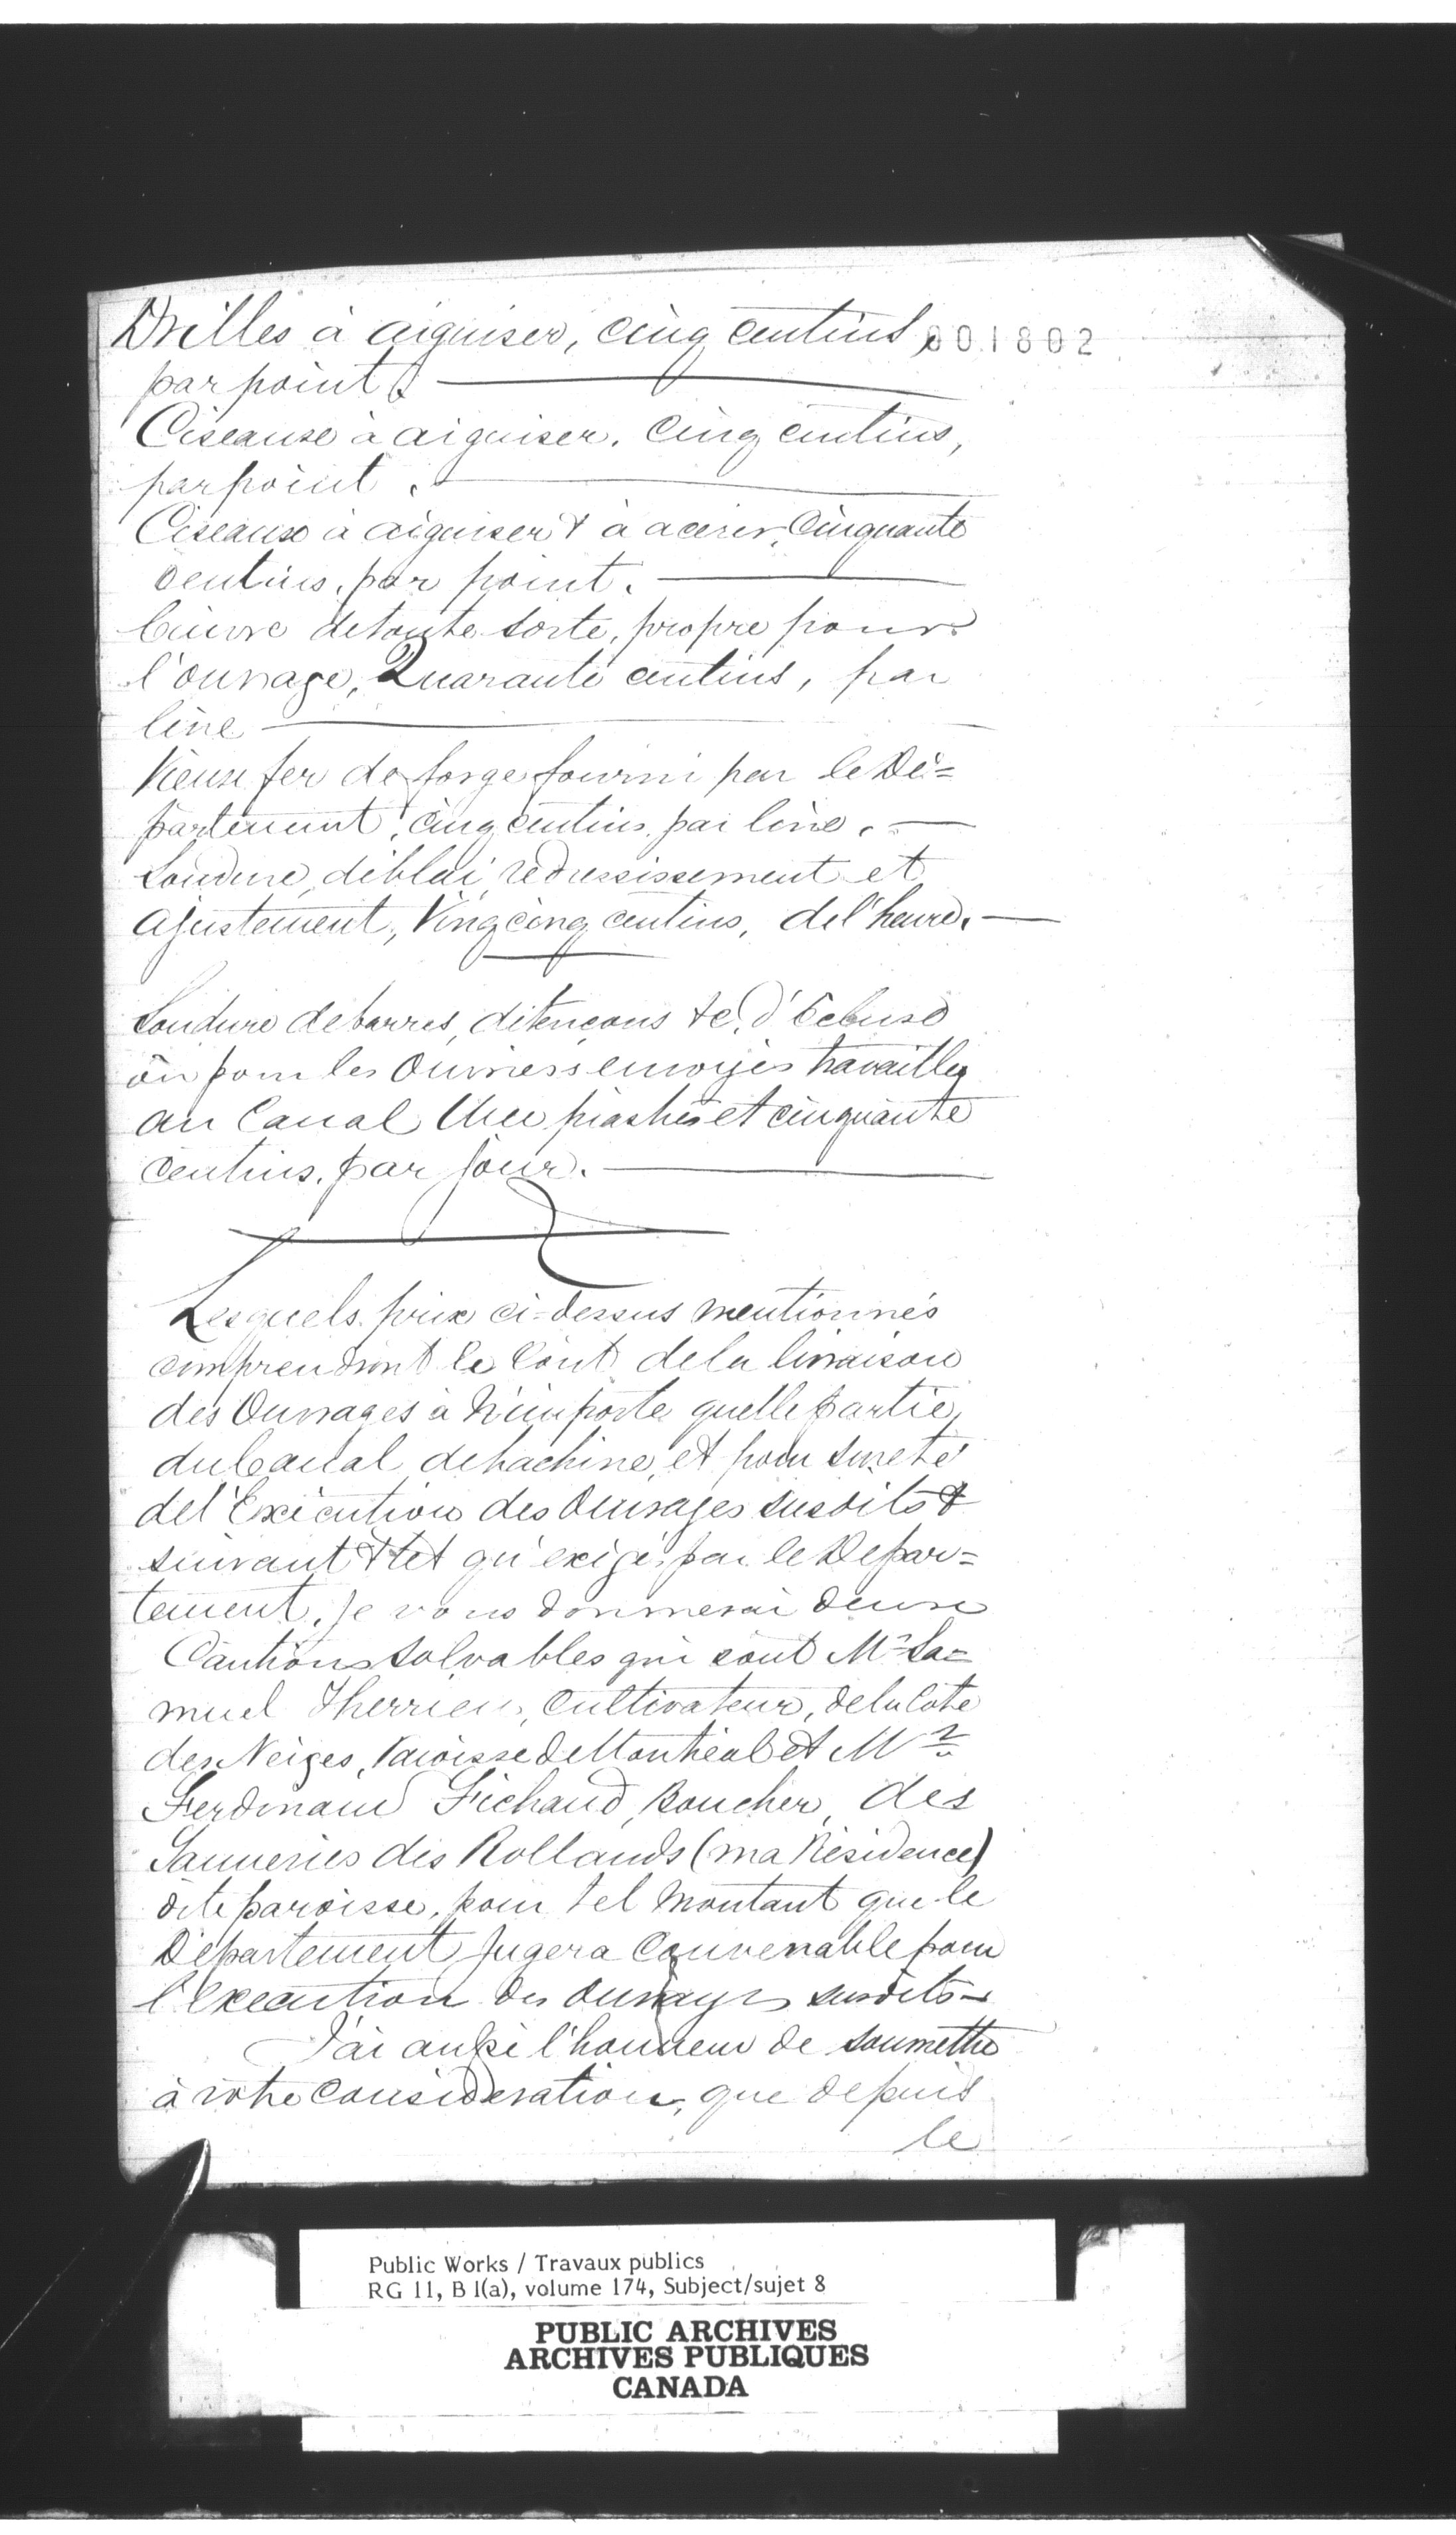 Drilles à aiguiser, cinq centins, 001802
par point.
Ciseause à aiguiser. Cinq centins,
par point.
Ciseaux à aiguiser & à acérer, Cinquante
Centins, par point.
Cuivre de toute sorte, propre pour
l'ouvrage, Quarante centins, par
livre
Vieux fer de forge fourni par le Dé=
partement, cinq centins par livre.
Soudure, déblai, redressissement et
ajustement, Vingcinq centins, de l'heure.
Soudure de barres, d'étençons &c. d'Ecluse
ou pour les Ouvriers envoyés travailler
au Canal Une piastre et cinquante
Centins, par jour.
Lesquels prix ci-dessus mentionnés
comprendront le Coût de la livraison
des Ouvrages à N'importe quelle partie
du Canal de Lachine, et pour sureté
de l'Exécution des Ouvrages susdits &
suivant & tel qu'exigé par le Depar=
tement, Je vous donnerai deux
Cautions solvables qui sont Mr. Sa=
muel Therrien, Cultivateur, de la Côte
des Neiges, Paroisse de Montréal et Mr.
Ferdinand Fichaud, Boucher, des
Tanneries des Rollands (ma Résidence)
dite paroisse, pour tel Montant que le
Département Jugera Convenable pour
l'execution des ouvrages susdits -
J'ai aussi l'honneur de soumettre
à votre Considération, que depuis
le
Public Works / Travaux publics
RG 11, B 1(a), volume 174, Subject/sujet 8
PUBLIC ARCHIVES
ARCHIVES PUBLIQUES
CANADA